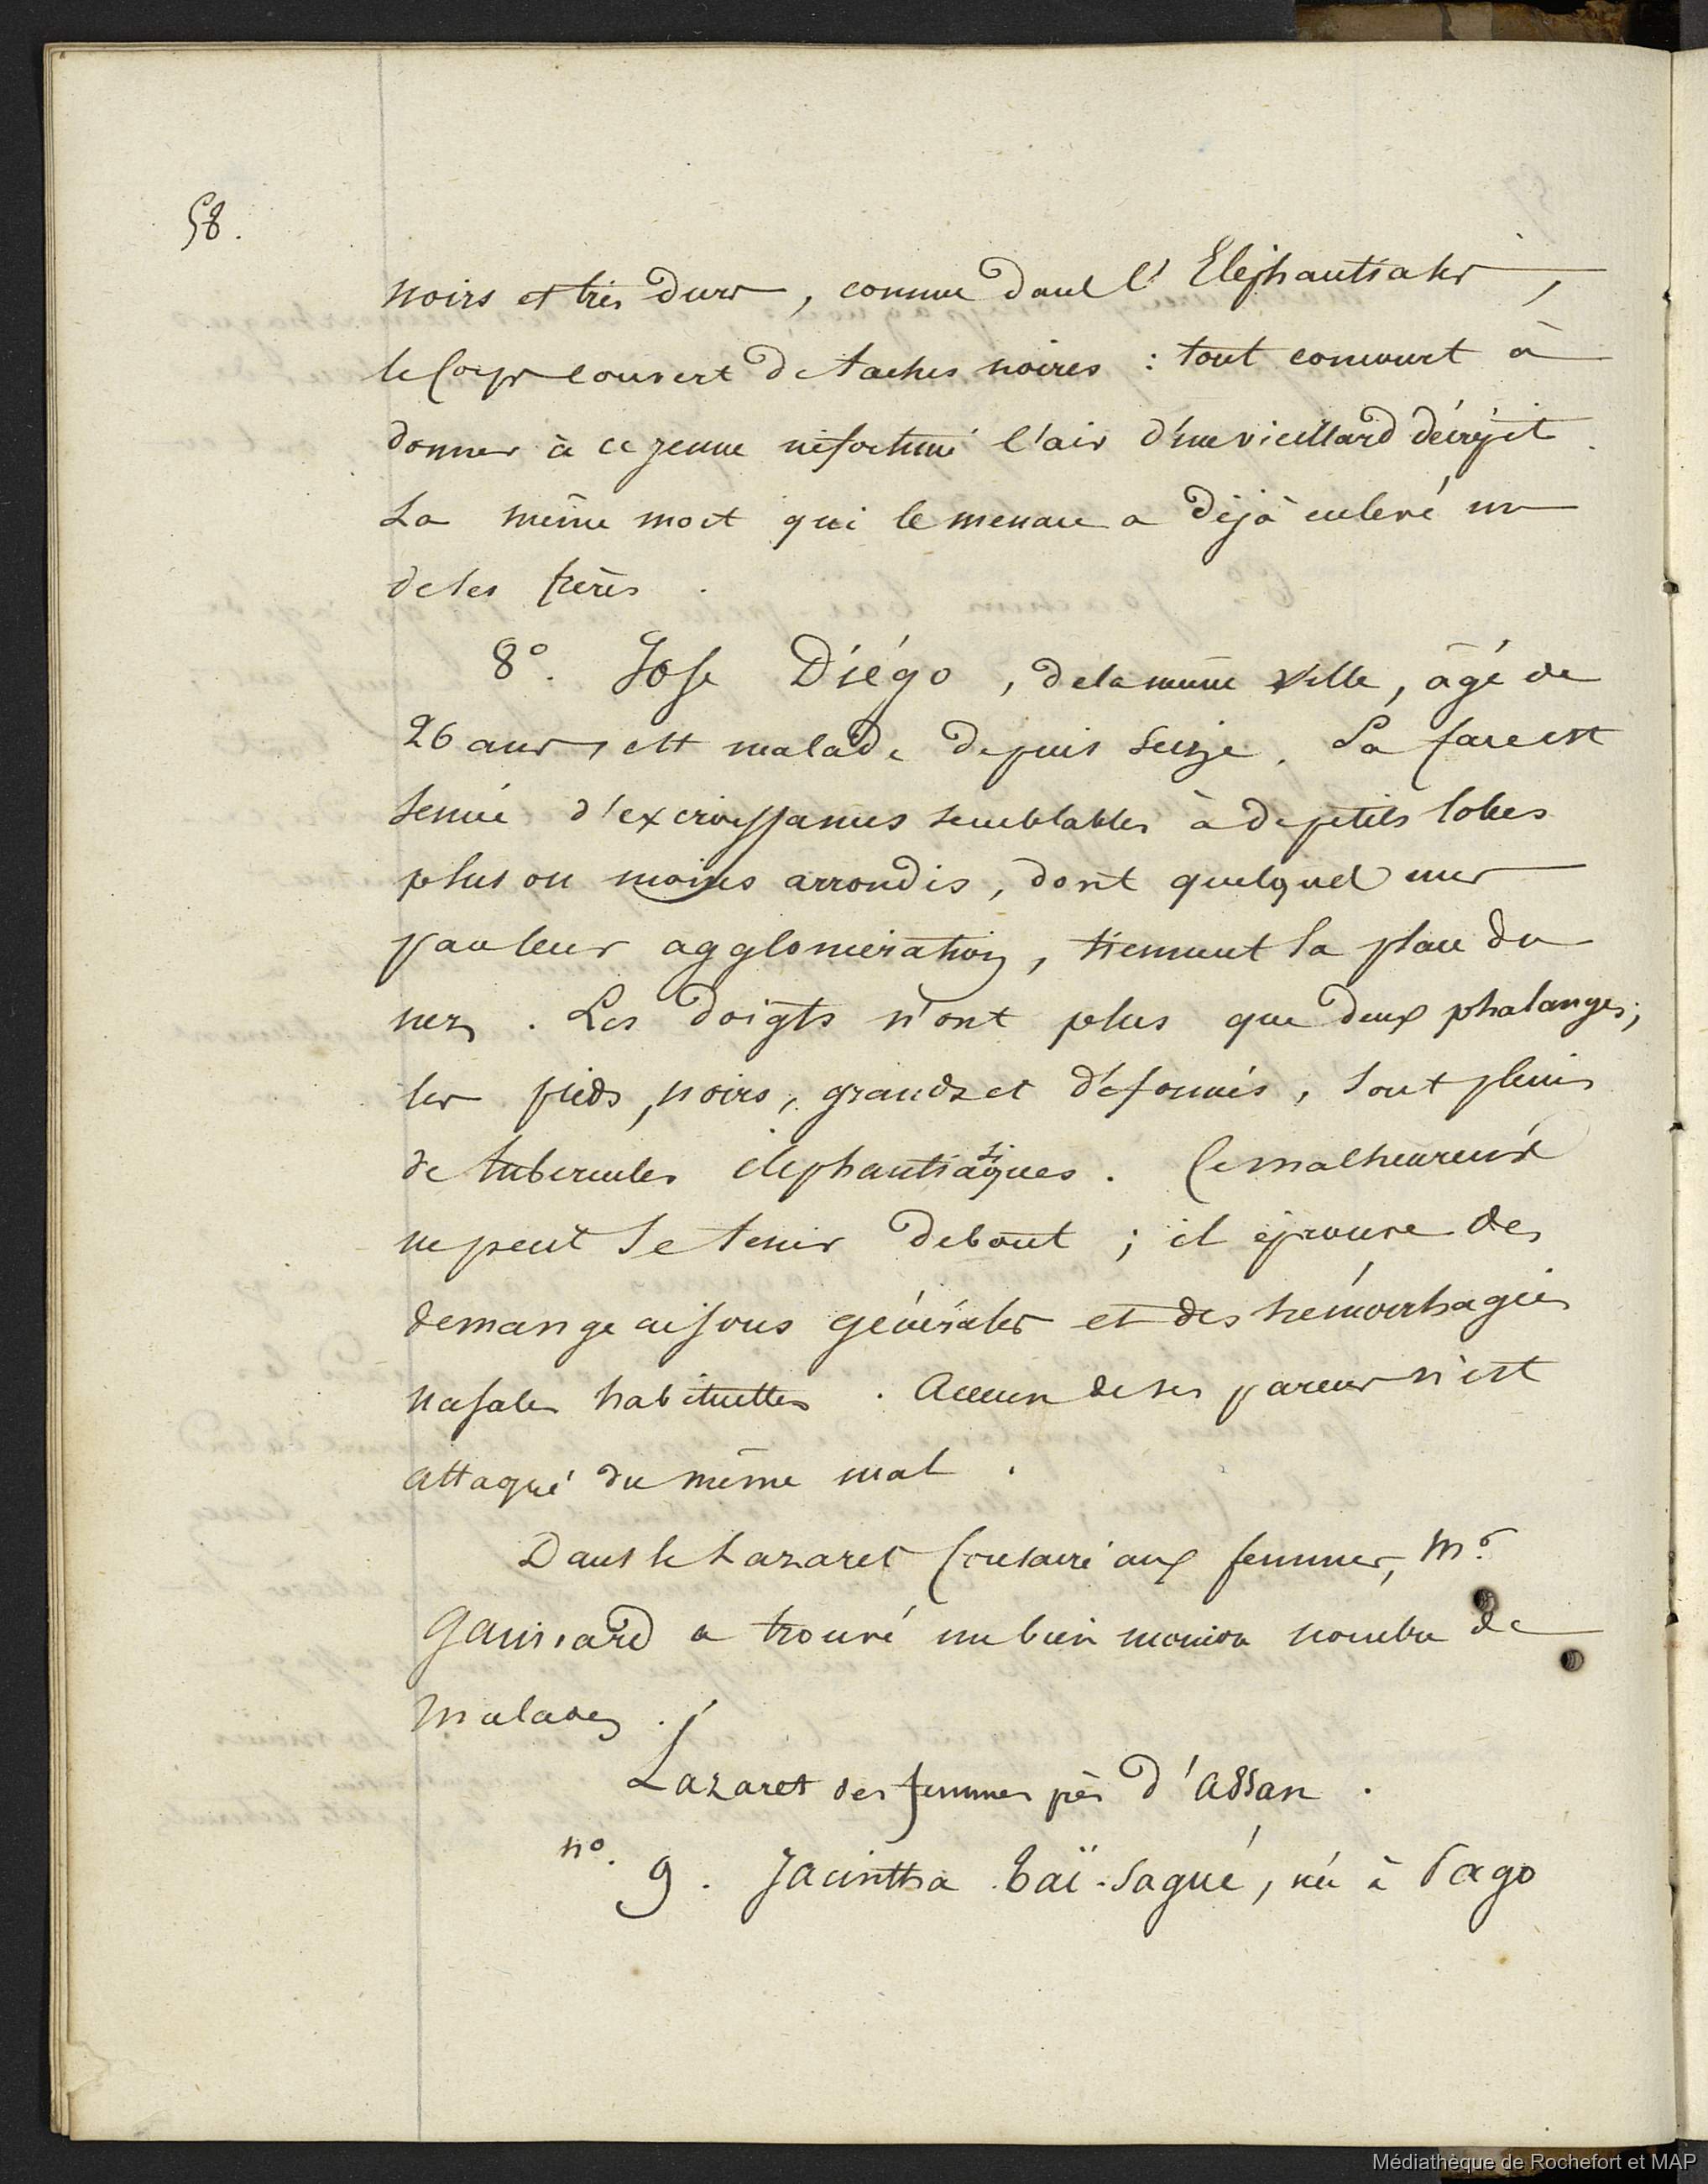 58.
noirs et très durs, comme dans l'Eléphantiasis,
le Corps couvert de taches noires : tout concourt à
donner à ce jeune infortuné l'air d'un vieillard décrépit.
La même mort qui le menace a déjà enlevé un
de ses frères.
8°. Jose Diégo, de la même ville, âgé de
26 ans, est malade depuis seize. Sa face est
semée d'excroissances semblables à de petits lobes
plus ou moins arrondis, dont quelques uns
par leur agglomération, tiennent la place du
nez. Les doigts n'ont plus que deux phalanges;
les pieds, noirs, grands et déformés, sont pleins
de tubercules éléphantiasiques. Ce malheureux
ne peut se tenir debout ; il éprouve des
demangeaisons générales et des hémorrhagies
nasales habituelles. Aucun de ses parens n'est
attaqué du même mal.
Dans le Lazaret Consacré aux femmes, Mr.
Gaimard a trouvé un bien moindre nombre de
malades.
Lazaret des femmes près d'Assan.
n°. 9. Jacintha Taï-Sagué, née à Pago
Médiathèque de Rochefort et MAP